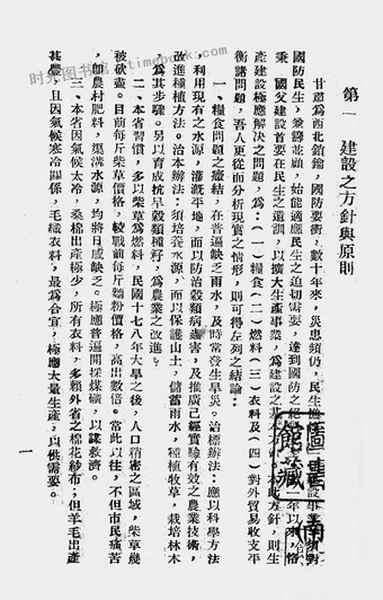 时光图书馆 timebooks.com
第一 建設之方針與原則
甘肅為西北鎖鑰,國防要衝,數十年來,災患頻仍,民生 設事業 須對
國防民生,兼籌並顧,始能適應民生之迫切需要,達到國防之 二年以來,恪
秉 國父建設首要在民生之遺訓,以擴大生產事業,為建設之基本方 本此方針,則生
產建設極應解決之問題,為:(一)糧食(二)燃料(三)衣料及(四)對外貿易收支平
衡諸問題,吾人更從而分析現實之情形,則可得左列之結論:
一、糧食問題之癥結,在普遍缺乏雨水,及時常發生旱災。治標辦法:應以科學方法
,利用現有之水源,灌溉平地,而以防治穀類病蟲害,及推廣已經實驗有效之農業技術,
改進種植方法。治本辦法:須培養水源,而以保護山土,儲蓄雨水,種植牧草,栽培林木
,為其步驟。另以育成抗旱穀類種籽,為農業之改進。
二、本省習慣,多以柴草為燃料,民國十七八年大旱之後,人口稍密之區域,柴草幾
被砍盡。目前每斤柴草價格,較戰前每斤麵粉價格,高出數倍。常此以往,不但市民痛苦
,即農村肥料,渠溝水源,均將日感缺乏。極應普遍開採煤礦,以謀救濟。
三、本省因氣候太冷,桑棉出產極少,所有衣料,多賴外省之棉花紗布;但羊毛出產
甚豐,且因氣候寒冷關係,毛織衣料,最為合宜,極應大量生產,以供需要。
一
南
圖書
館藏